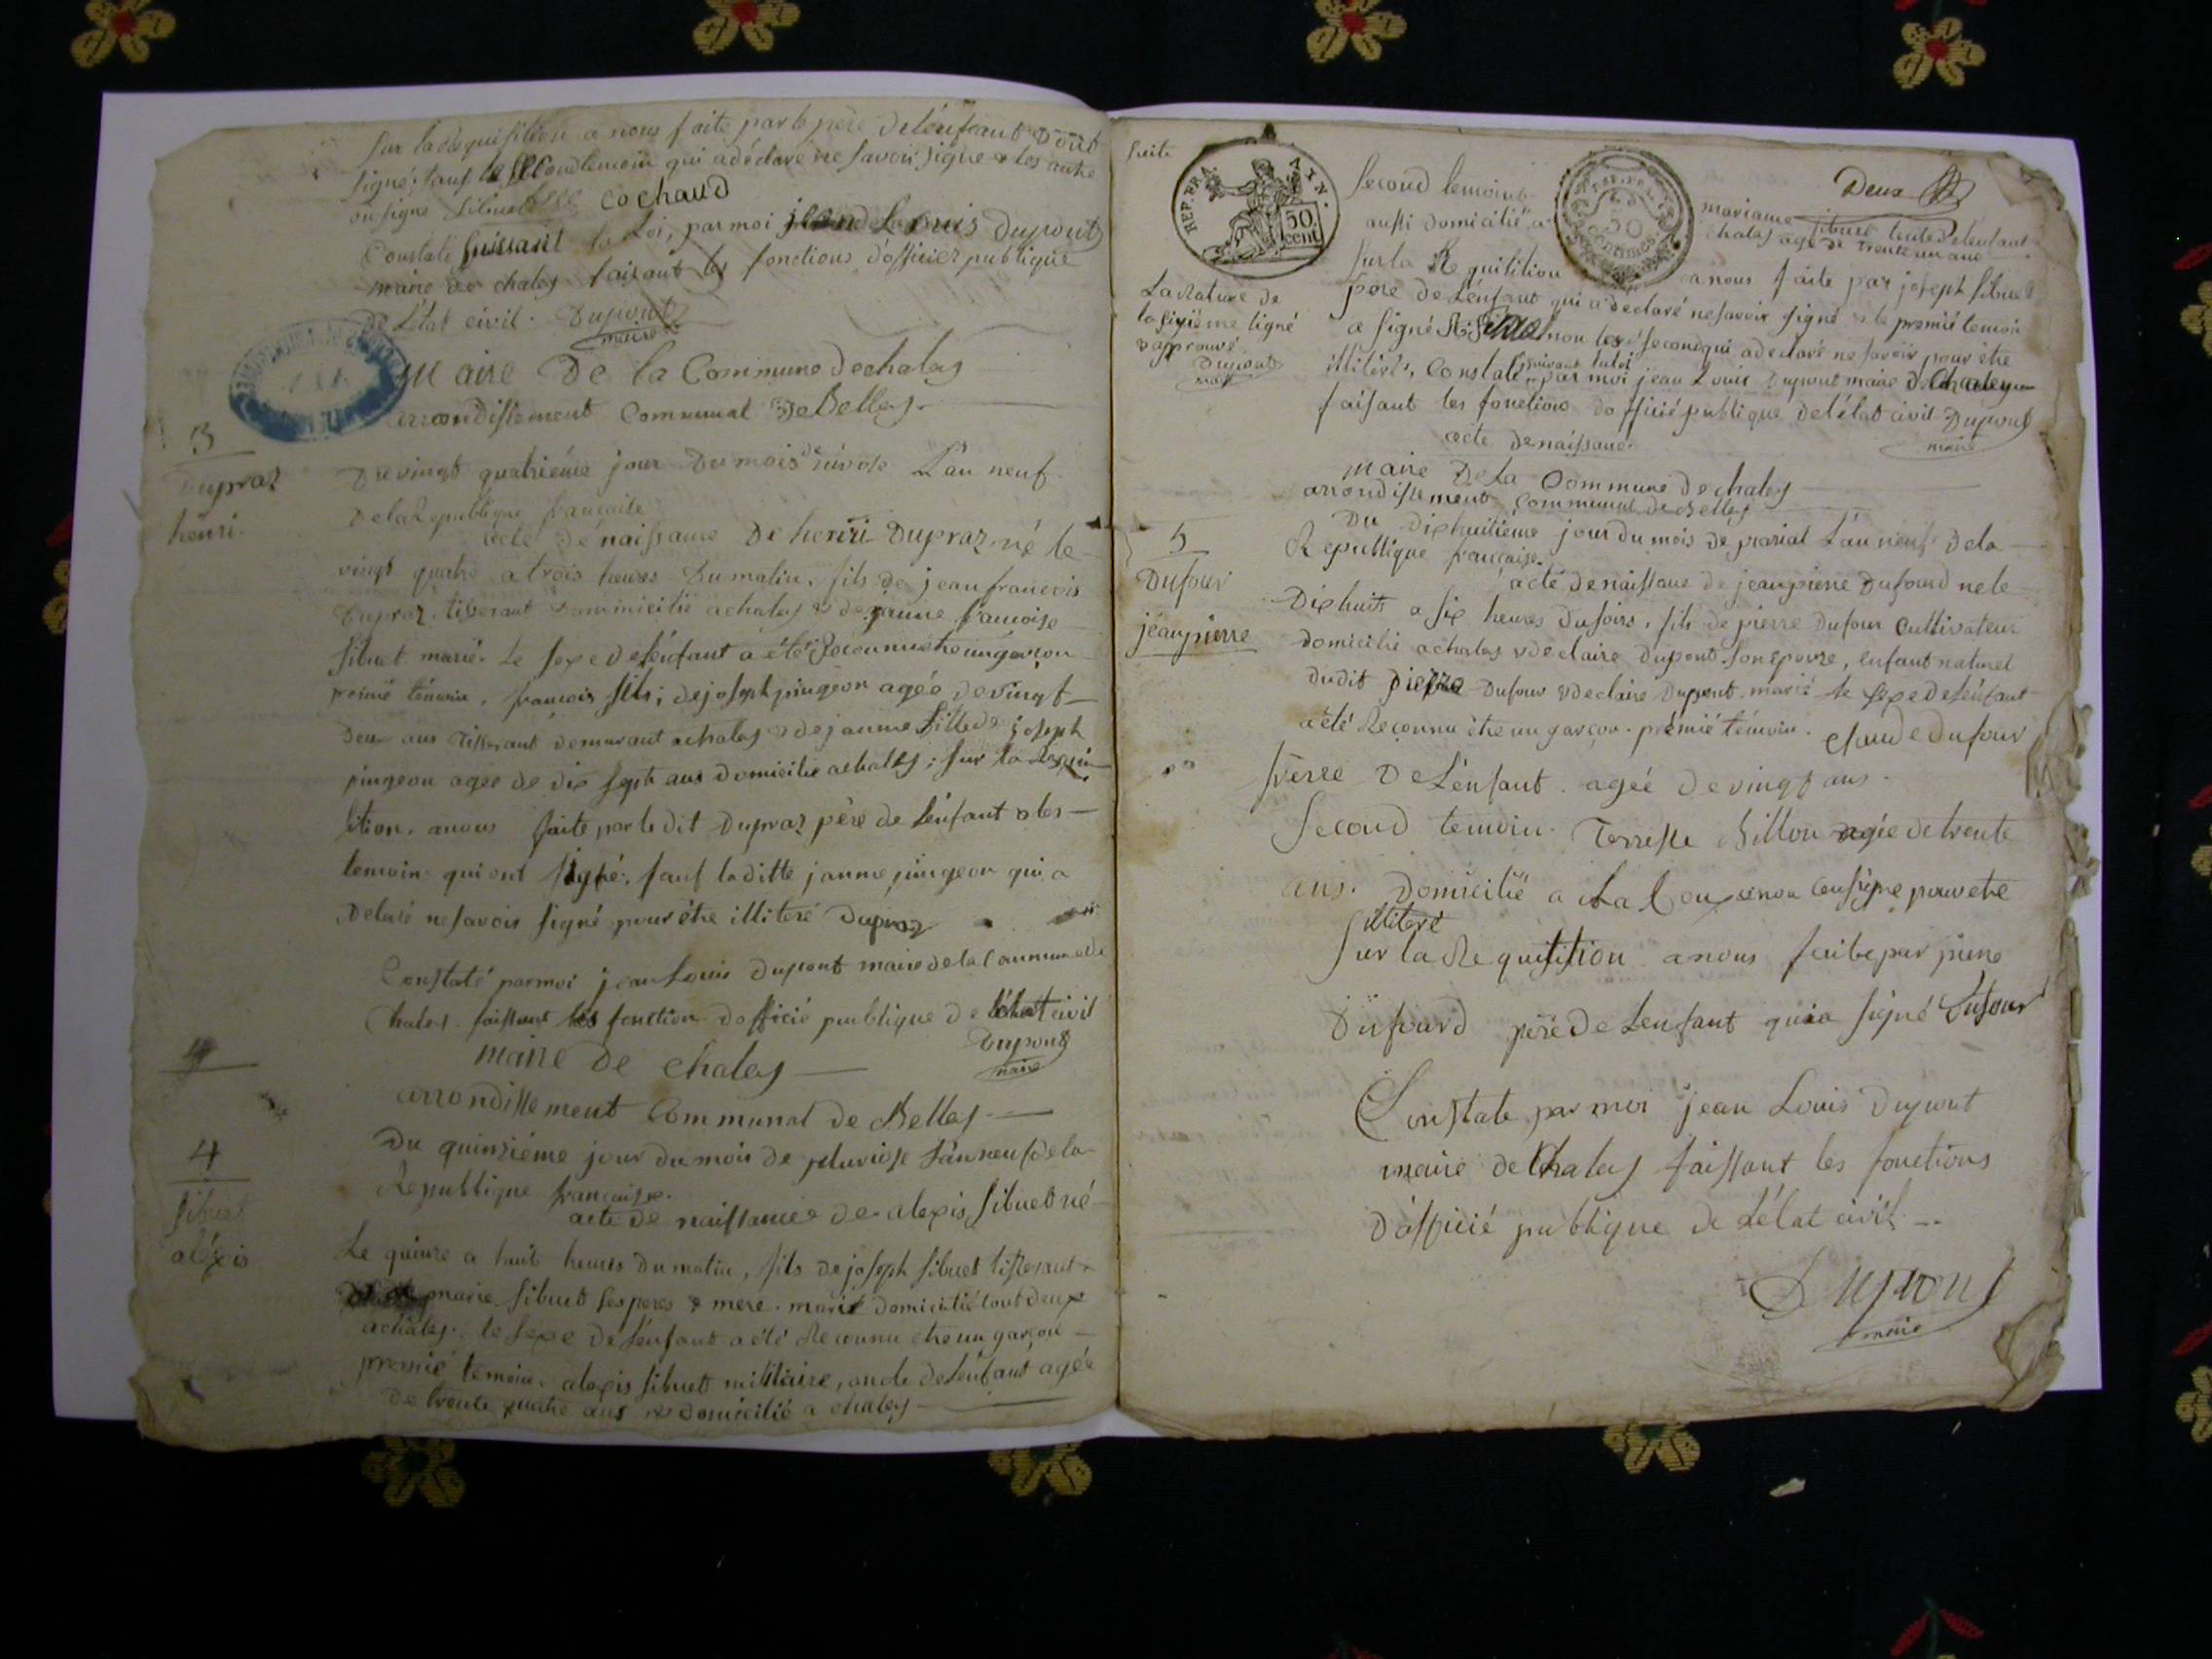 Sur la Requisition a nous faite par le père de l'enfant dont
signé; sauf le second temoin qui a déclaré ne savoir signé & les autre
on signe Sibuet cochaud
Constaté suivant la Loi, par moi jean Louis Dupont
maire de chaley faisant les fonctions d'officier publique
de L'état civil. Dupont
maire
Maire De la Commune de chaley
arrondissement Communal de Belley
3
Dupraz
henri
Du vingt quatriéme jour Du mois de nivose L'an neuf
De la Republique française
acte de naissance De henri Dupraz né le
vingt quatre a trois heures Du matin, fils de jean francois
Dupraz tisserant domicilié a chaley & de janne francoise
Sibuet marié. Le sexe de l'enfant a été Reconnu etre un garçon
premié témoin, francois fils; de joseph pingeon agée de vingt
deux ans tisserant demeurant a chaley & de janne fille de joseph
pingeon agée de dix sept ans domicilié a chaley; sur la Requi
sition, a nous faite par le dit Dupraz père de L'enfant & les
temoin qui ont signé, sauf laditte janne pingeon qui a
Delaré ne savoir signé pour étre illiteré Dupraz
Constaté par moi jean Louis Dupont maire de la Commune de
Chaley faissant les fonction d'officié publique de l'état civil
Dupont
maire
4
maire de chaley
arrondissement Communal de Belley
4
Sibuet
aléxis
Du quinziéme jour du mois de pluviose L'an neuf de la
Republique française.
acte de naissance de alexis Sibuet né
Le quinze a huit heures Du matin, fils de joseph Sibuet tisserant &
marie Sibuet ses peres & mere. marié domicilié tout deux
a chaley. le sexe de L'enfant a été Reconnu etre un garçon
premié temoin. alexis Sibuet militaire, oncle de L'enfant agée
de trente quatre ans & domicilié a chaley
Suite
REP. FRA. AN.
50 cent
50
Deux
Second temoin mariame Sibuet tante de l'enfant
aussi domicilié a chaley agé de trente un ans
Sur la Requisition a nous faite par joseph Sibuet
La Rature de
la sixiéme ligne
approuvé
Dupont
maire
père de L'enfant qui a déclaré ne savoir signé & le premié temoin
a signé non le second qui a declaré ne savoir pour étre
illiteré, Constaté suivant la loi par moi jean Louis Dupont maire de Chaley
faisant les fonctions d'officié publique de l'état civil Dupont
maire
acte de naissance
Maire De la Commune de chaley
arrondissement Communal de Belley
5
Dufour
jéan pierre
Du dix huitiéme jour du mois de prarial L'an neuf de la
Republique française.
acte de naissance de jean pierre Dufourd né le
Dix huit a six heures du soirs, fils de pierre Dufour cultivateur
domicilié a chaley & de claire Dupont son épouse, enfant naturel
du dit pierre Dufour & de claire Dupont marié le sexe de L'enfant
a été Reconnu étre un garçon. prémié témoin. claude Dufour
frèree De L'enfant agée de vingt ans.
Second temoin. Terresse Billon agée de trente
ans. Domicilié a pour etre
illiteré
Sur la Requisition a nous faite par pierre
Dufourd père de L'enfant qui a signé Dufour
Constaté par moi jean Louis Dupont
maire de Chaley faissant les fonctions
d'officié publique de L'état civil
Dupont
maire